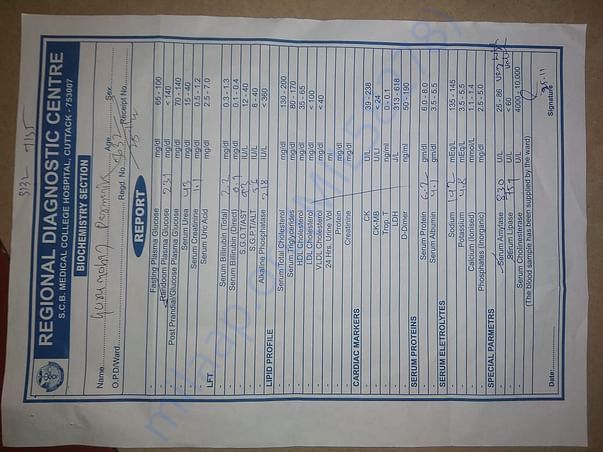 8132 935
REGIONAL DIAGNOSTIC CENTRE
S.C.B. MEDICAL COLLEGE HOSPITAL, CUTTACK - 753007
BIOCHEMISTRY SECTION
Name Age Sex
O.P.D/Ward Regd. No. 8132 Receipt No.
REPORT
- Fasting Plasma Glucose mg/dl 65 - 100
- Random Plasma Glucose 231 mg/dl < 140
- Post Prandial/Glucose Plasma Glucose mg/dl 70 - 140
- Serum Urea 43 mg/dl 15 - 40
- Serum Creatinine 1.1 mg/dl 0.5 - 1.2
- Serum Uric Acid mg/dl 2.5 - 7.0
LFT
- Serum Bilirubin (Total) mg/dl 0.3 - 1.3
- Serum Bilirubin (Direct) mg/dl 0.1 - 0.4
- S.G.O.T/AST IU/L 12 - 40
- S.G.P.T/ALT IU/L
- Alkaline Phosphatase 218 U/L < 360
LIPID PROFILE
- Serum Total Cholesterol mg/dl 130 - 200
- Serum Triglycerides mg/dl 80 - 170
- HDL Cholesterol mg/dl 35 - 65
- LDL Cholesterol mg/dl <100
- VLDL Cholesterol mg/dl <40
24 Hrs. Urine Vol ml
- Protein mg/dl
- Creatinine mg/dl
CARDIAC MARKERS
- CK U/L 39 - 238
- CK-MB U/L < 24
- Trop. T 0 - 0.1
- LDH U/L 313 - 618
- D-Dimer 50 - 190
SERUM PROTEINS
- Serum Protein gm/dl 6.0 - 8.0
- Serum Albumin 4.1 gm/dl 3.5 - 5.5
SERUM ELETROLYTES
- Sodium 142 mEq/L 135 - 145
- Potassium 4.8 mEq/L 3.5 - 5.5
- Calcium (Ionised) mmol/L 1.1 - 1.4
- Phosphates (Inorganic) mg/dl 2.5 - 5.0
SPECIAL PARMETRS
- Serum Amylase 830 U/L 25 - 86
- Serum Lipase 759 U/L < 60
- Serum Cholinesterase U/L 4000 - 10,000
(The blood sample has been supplied by the ward)
Date: Signature